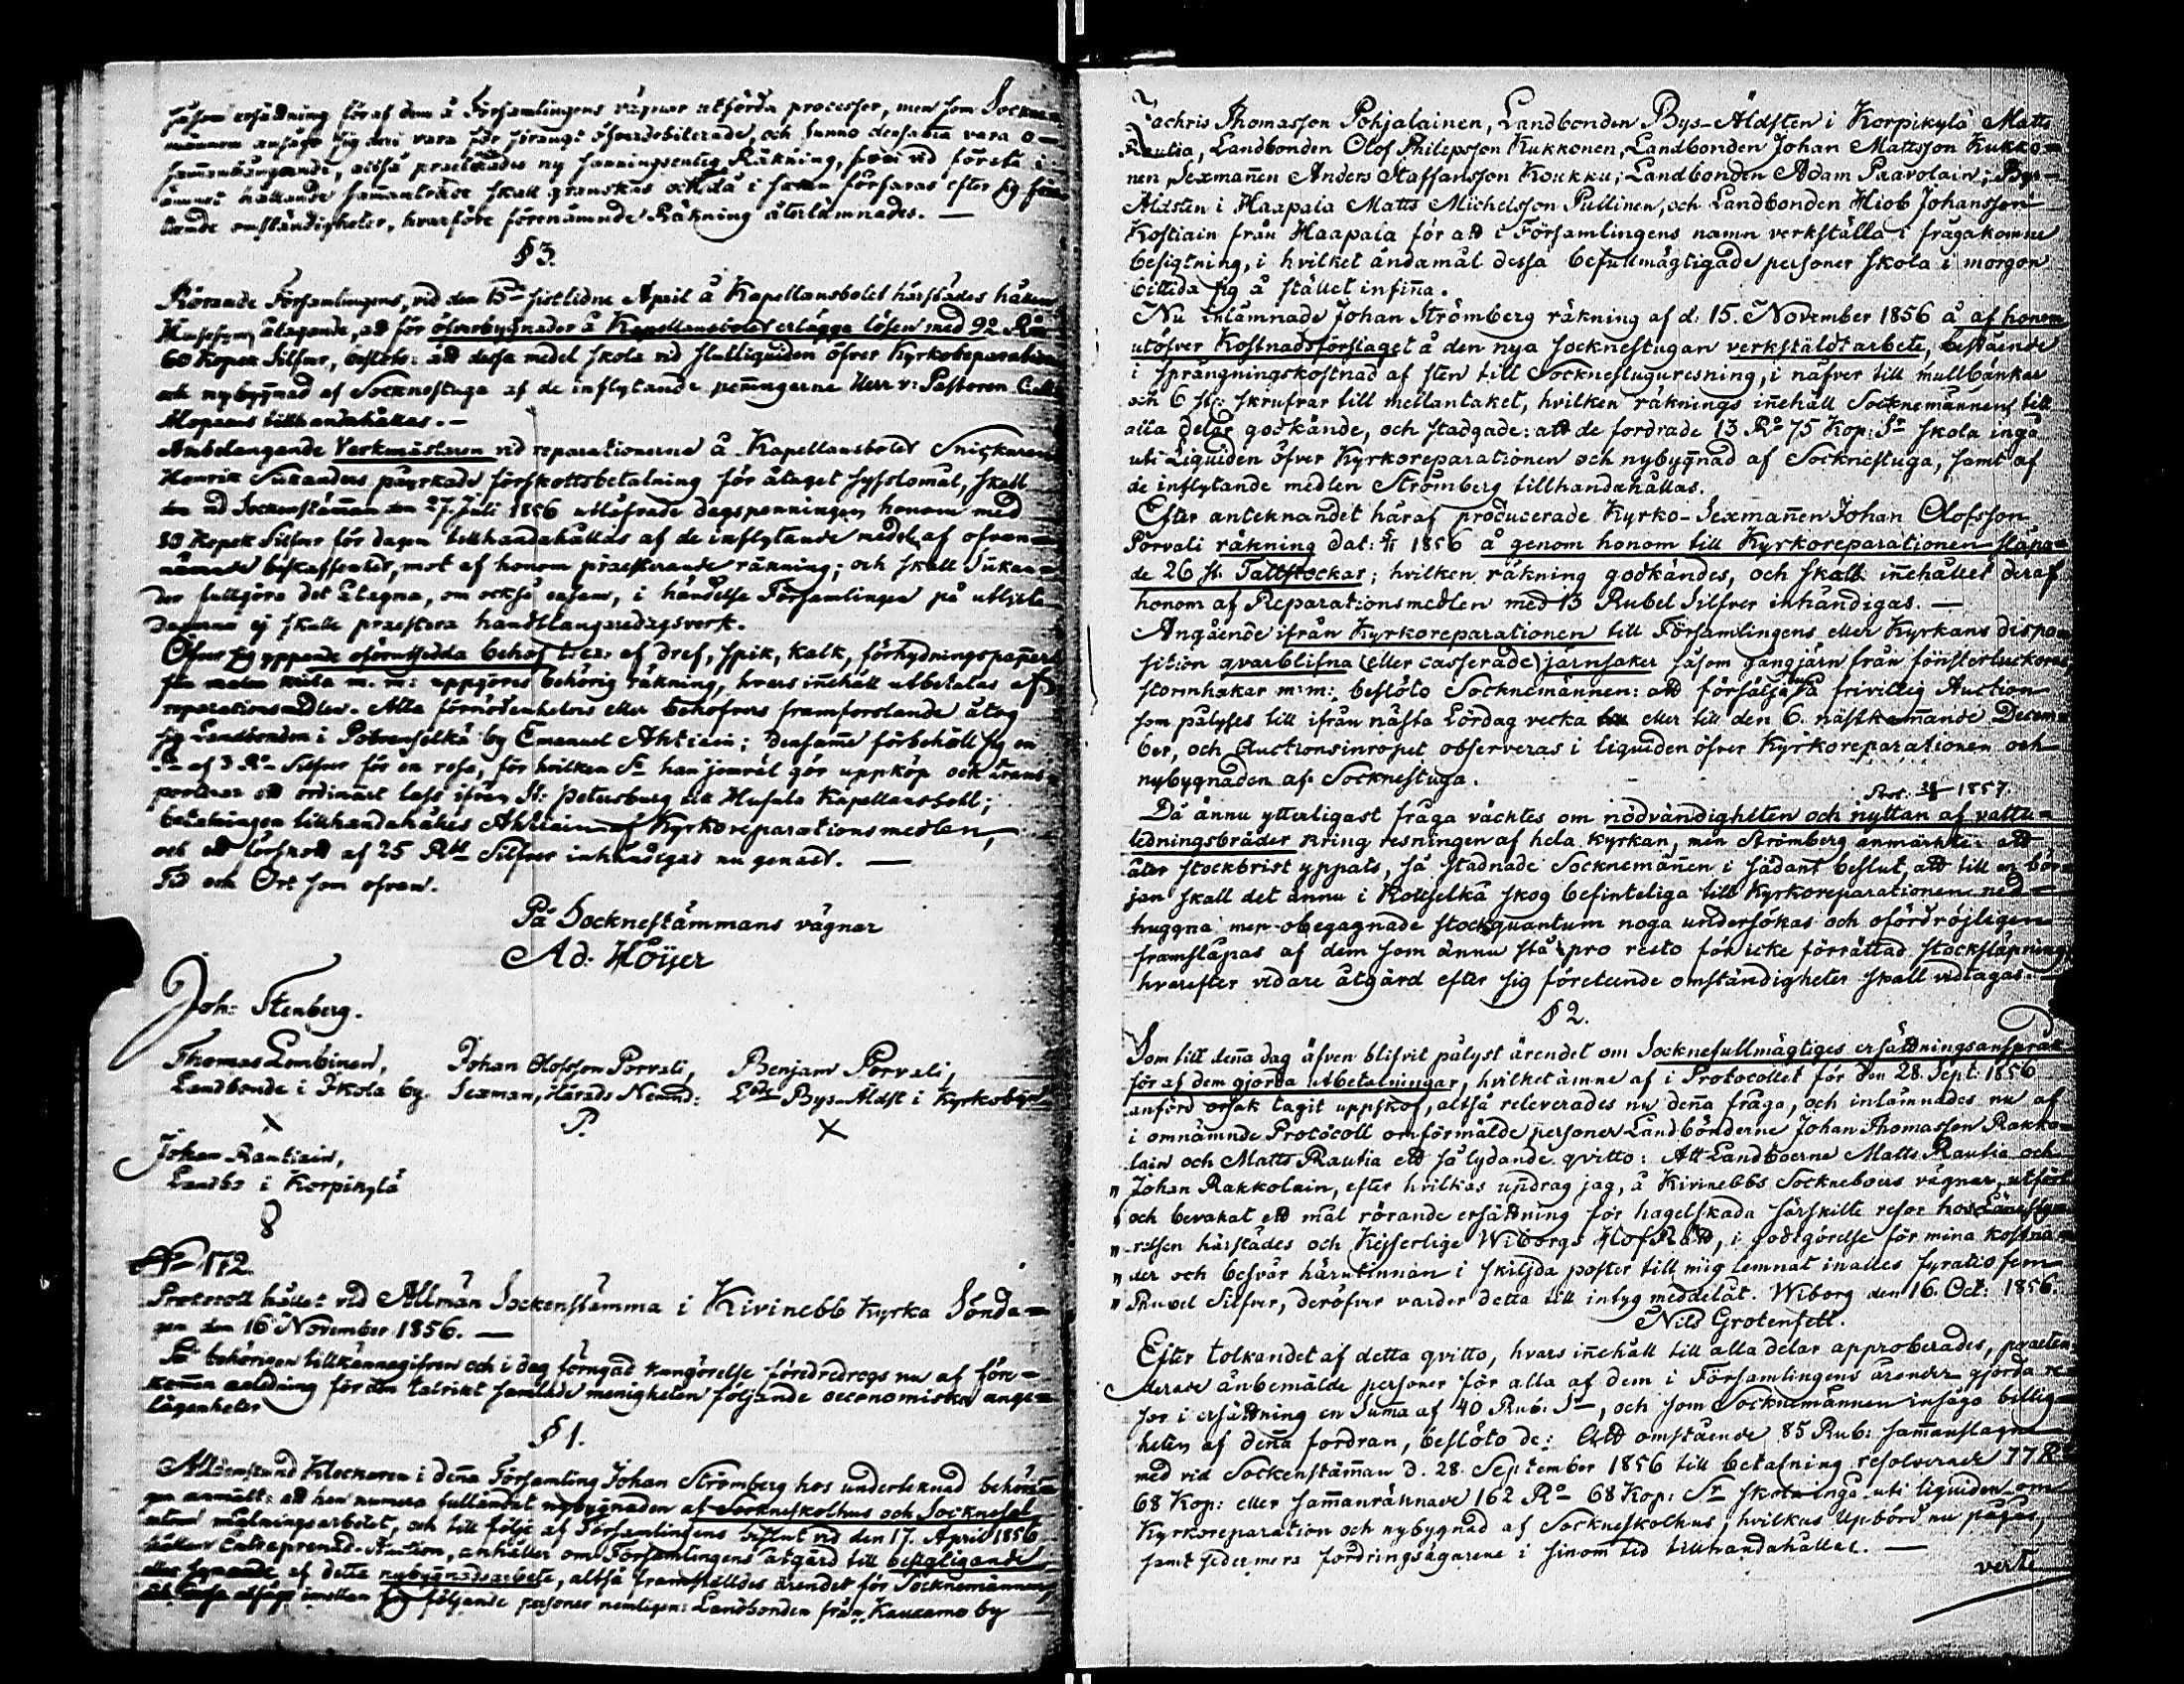 såsom ersättning för af dem å Församlingens vägnar utförda processer, men som Socknemännerne
ansågo sig deri vara för högt öfverdebiterade, och denna densamma vara o-
sammanhängande, altså praetenderades ny sanningsenlig Räkning, hvari vid första i
ämnet hållande sammanträde skall granskas och då i saken förfaras efter sig före-
teende omständigheter, hvarföre förenämnde Räkning återlämnades. —
§ 3.
Rörande Församlingens, vid den 15de sistlidne April å Kapellansbolet härstädes hållen
Husesyn, åtagande, att för öfverbyggnader å Kapellansbolet erlägga lösen med 92 Ro
60 Kopek Silfver, beslöts: att dessa medel skola vid slutliquiden öfver Kyrkoreparation
och nybyggnad af Socknestuga af de inflytande penningarne Herr v: Pastoren
Alopaeus tillhandahållas. —
Anbelangande Verkmästaren vid reparationerne å Kapellansbolet Snickaren
Henrik Sukanders påyrkade förskottsbetalning för åtaget sysslomål, skall
den vid Sockenstämman den 27 Juli 1856 utlåfvade dagspenningen honom med
80 Kopek Silfver för dagen tillhandahållas af de inflytande medel af ofvan-
nämnde beskaffenhet, mot af honom praesterande räkning; och skall Sukan-
der fullgöra det åtagna, om också ensam, i händelse Församlingen på utsatte
dagarna ej skulle praestera handtlangaredagsverk.
Öfver sig yppande oförutsedda behof t. ex: af dref, spik, kalk, förhydningspapper
m. m: uppgöres behörig räkning, hvars innehåll utbetalas af
reparationsmedlen. Alla förnödenheters eller behofvers framforslande åtog
sig Landbonden i Polvenselkä by Emanuel Ahtiain; densamme förbehöll sig en
Sa af 3 Ro Silfver för en resa, för hvilken Sa han jemväl gör uppköp och trans-
porterar ett ordinärt lass ifrån St: Petersburg till Husula Kapellansboll;
betalningen tillhandahålles Ahtiain af Kyrkoreparationsmedlen,
och ett förskott af 25 Rbl Silfver inhändigas nu genast. —
Tid och Ort som ofvan.
På Socknestämmans vägnar
Ad: Höijer
Joh: Stenberg.
Thomas Lembinen, Johan Olofsson Porvali, Benjam Porvali,
Landbonde i Ikola by. Sexman, Härads Nemnd: Lbde Bys-Äldst i Kyrkobyn
X P. X
Johan Rautiain,
Landbo i Korpikylä
8
No 172.
Protocoll hållet vid Allmän Sockenstämma i Kivinebb Kyrka Sönda-
gen den 16 November 1856. —
På behörigen tillkännagifven och i dag förngåd kungörelse föredrogs nu af före-
kommen anledning för den talrikt samlade menigheten följande oeconomiska ange-
lägenheter
§ 1.
Alldenstund Klockaren i denna Församling Johan Strömberg hos undertecknad behöri-
gen anmält: att han numera fulländat nybyggnaden af Socknestolhus och
målningsarbetet, och till följe af Församlingens beslut vid den 17. April 1856
hållen Entreprenad-Auction, anhåller om Församlingens åtgärd till besigtigande
eller synande af detta nybyggnadsarbete, altså framställdes ärendet för Socknemännen,
emellan sig följande personer nemligen: Landbonden från Kaukamo by
Zachris Thomasson Pohjalainen, Landbonden Bys-Äldsten i Korpikylä Matts
Rautia, Landbonden Olof Philipsson Kukkonen, Landbonden Johan Mattsson Kukko-
nen Sexmannen Anders Staffansson Koukku; Landbonden Adam Paavolain; Bys-
Äldsten i Haapala Matts Michelsson Pullinen, och Landbonden Hiob Johansson
Kostiain från Haapala för att i Församlingens namn verkställa i frågakomne
besigtning, i hvilket ändamål dessa befullmägtigade personer skola i morgon
bittida sig å stället infinna.
Nu inlämnade Johan Strömberg räkning af d: 15. November 1856 å af honom
utöfver Kostnadsförslaget å den nya socknestugan verkstäldt arbete, bestående
i sprängningskostnad af sten till Socknestuguresning, i näfver till mullbänkar
och 6 st: skrufvar till mellantaket, hvilken räknings innehåll Socknemännen till
alla delar godkände, och stadgade: att de fordrade 13 Ro 75 Kop: Sr skola ingå
uti Liquiden öfver Kyrkoreparationen och nybyggnad af Socknestuga, samt af
de inflytande medlen Strömberg tillhandahållas.
Efter anteknandet häraf producerade Kyrko-Sexmannen Johan Olofsson
Porvali räkning dat: 5/11 1856 å genom honom till Kyrkoreparationen släpa-
de 26 st. Tallstockar; hvilken räkning godkändes, och skall innehållet deraf
honom af Reparationsmedlen med 13 Rubel Silfver inhändigas. —
Angående ifrån Kyrkoreparationen till Församlingens eller Kyrkans dispo-
sition qvarblifna (eller casserade) järnsaker såsom gångjärn från fönsterluckorna
stormhakar m: m: beslöto Socknemännen: att försälja på frivillig Auction
som pålyses till ifrån nästa Lördag vecka eller till den 6. nästkommande Decem-
ber, och Auctionsinropet observeras i liquiden öfver Kyrkoreparationen och
nybygnaden af Socknestuga.
1857.
Då ännu ytterligast fråga väcktes om nödvändigheten och nyttan af vattu-
ledningsbräder kring resningen af hela kyrkan, men Strömberg anmärkte: att
åter stockbrist yppats, så stadnade Socknemännen i sådant beslut, att till en bör-
jan skall det ännu i Kotiselkä skog befinteliga till Kyrkoreparationen ned-
huggna men obegagnade stockquantum noga undersökas och ofördröjligen
framsläpas af dem som ännu stå pro resto för icke förrättad stocksläpning
hvarefter vidare åtgärd efter sig företeende omständigheter skall vidtagas. —
§ 2.
Som till denna dag äfven blifvit pålyst ärendet om Socknefullmägtiges ersättningsanspråk
för af dem gjorda utbetalningar, hvilket ämne af i Protocollet för den 28. Sept: 1856
anförd orsak tagit uppskof, altså releverades nu denna fråga, och inlämnades nu af
i omnämnde Protocoll omförmälde personer Landbönderne Johan Thomasson Rakko-
lain och Matts Rautia ett så lydande qvitto: Att Landboerne Matts Rautia och
" Johan Rakkolain, efter hvilkas updrag jag, å Kivinebbs Sockneboers vägnar, utfört
" och bevakat ett mål rörande ersättning för hagelskada särskilte resor hos Länestyr
" relsen härstädes och Kejserlige Wiborgs HofRätt, i godtgörelse för mina kostna-
" der och besvär härutinnan i skiljda poster till mig lemnat inalles fyratio fem
" Rubel Silfver, deröfver varder detta till intyg meddelat. Wiborg den 16. Oct: 1856.
Nils Grotenfelt.
Efter tolkandet af detta qvitto, hvars innehåll till alla delar approberades, praeten-
derade ånbemälde personer för alla af dem i Församlingens ärender gjorda re-
sor i ersättning en Summa af 40 Rub: Sr, och som Socknemännen insågo billig-
heten af denna fordran, beslöto de: Att omstående 85 Rub: sammanslagne
med vid Sockenstämman d. 28. September 1856 till betalning resolverade 77 Ro
68 Kop: eller sammanräknade 162 Ro 68 Kop: Sr skola ingå uti liquiden om
Kyrkoreparation och nybygnad af Socknestolhus, hvilkas Upbörd nu pågår,
samt sedermera fordringsägarene i sinom tid tillhandahållas. —
verte